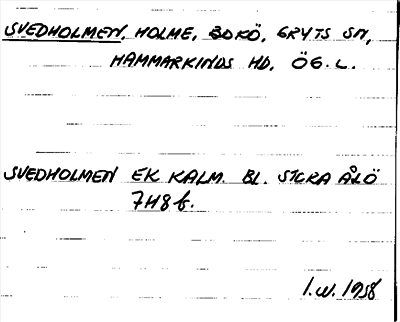 SVEDHOLMEN, HOLME, BOKÖ, GRYTS SN,
HAMMARKINDS HD, ÖG. L.
SVEDHOLMEN EK KALM. BL. STORA ÅLÖ
7H8f.
I.W. 1958